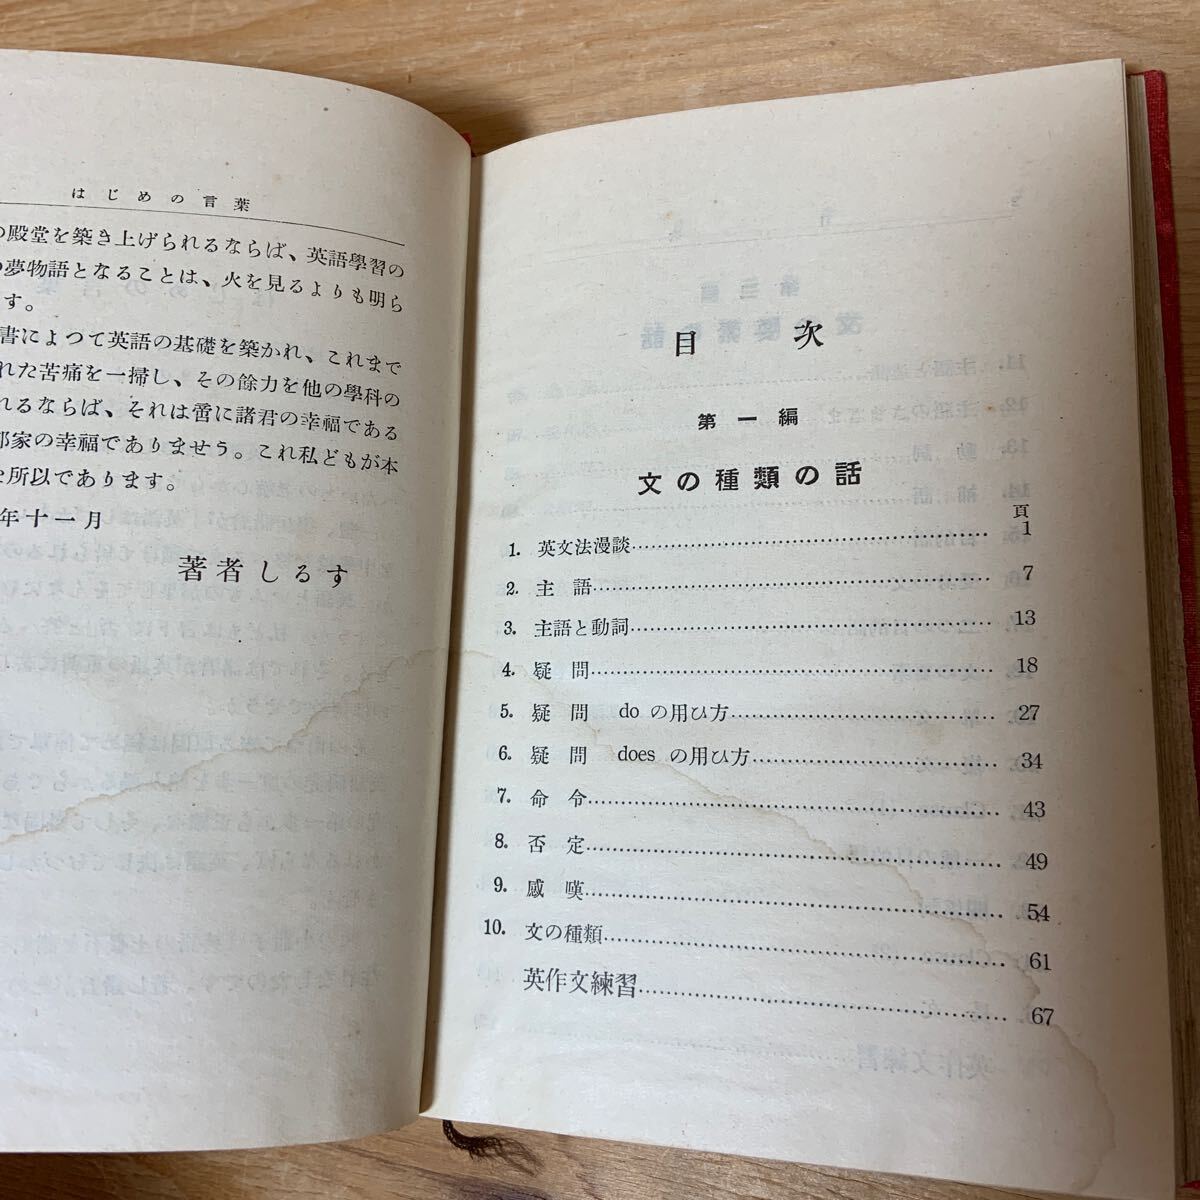 はじめの言葉
の殿堂を築き上げられるならば、英語學習の
夢物語となることは、火を見るよりも明ら
す。
書によつて英語の基礎を築かれ、これまで
れた苦痛を一掃し、その餘力を他の學科の
れるならば、それは啻に諸君の幸福である
家の幸福でありませう。これ私どもが本
所以であります。
年十一月
著者しるす
目次
第一編
文の種類の話
頁
1. 英文法漫談 1
2. 主語 7
3. 主語と動詞 13
4. 疑問 18
5. 疑問 do の用ひ方 27
6. 疑問 does の用ひ方 34
7. 命令 43
8. 否定 49
9. 感嘆 54
10. 文の種類 61
英作文練習 67